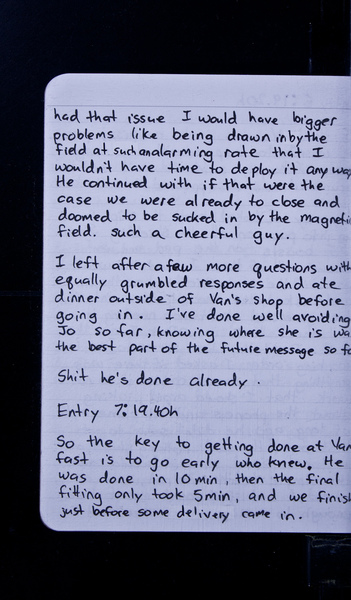 had that issue I would have bigger
problems like being drawn in by the
field at such an alarming rate that I
wouldn't have time to deploy it any way
He continued with if that were the
case we were already to close and
doomed to be sucked in by the magneti
field. such a cheerful guy.
I left after a few more questions with
equally grumbled responses and ate
dinner outside of Van's shop before
going in. I've done well avoiding
Jo so far, knowing where she is wa
the best part of the future message so fa
Shit he's done already.
Entry 7: 19.40h
So the key to getting done at Van
fast is to go early who knew. He
was done in 10 min, then the final
fitting only took 5min, and we finis
just before some delivery came in.